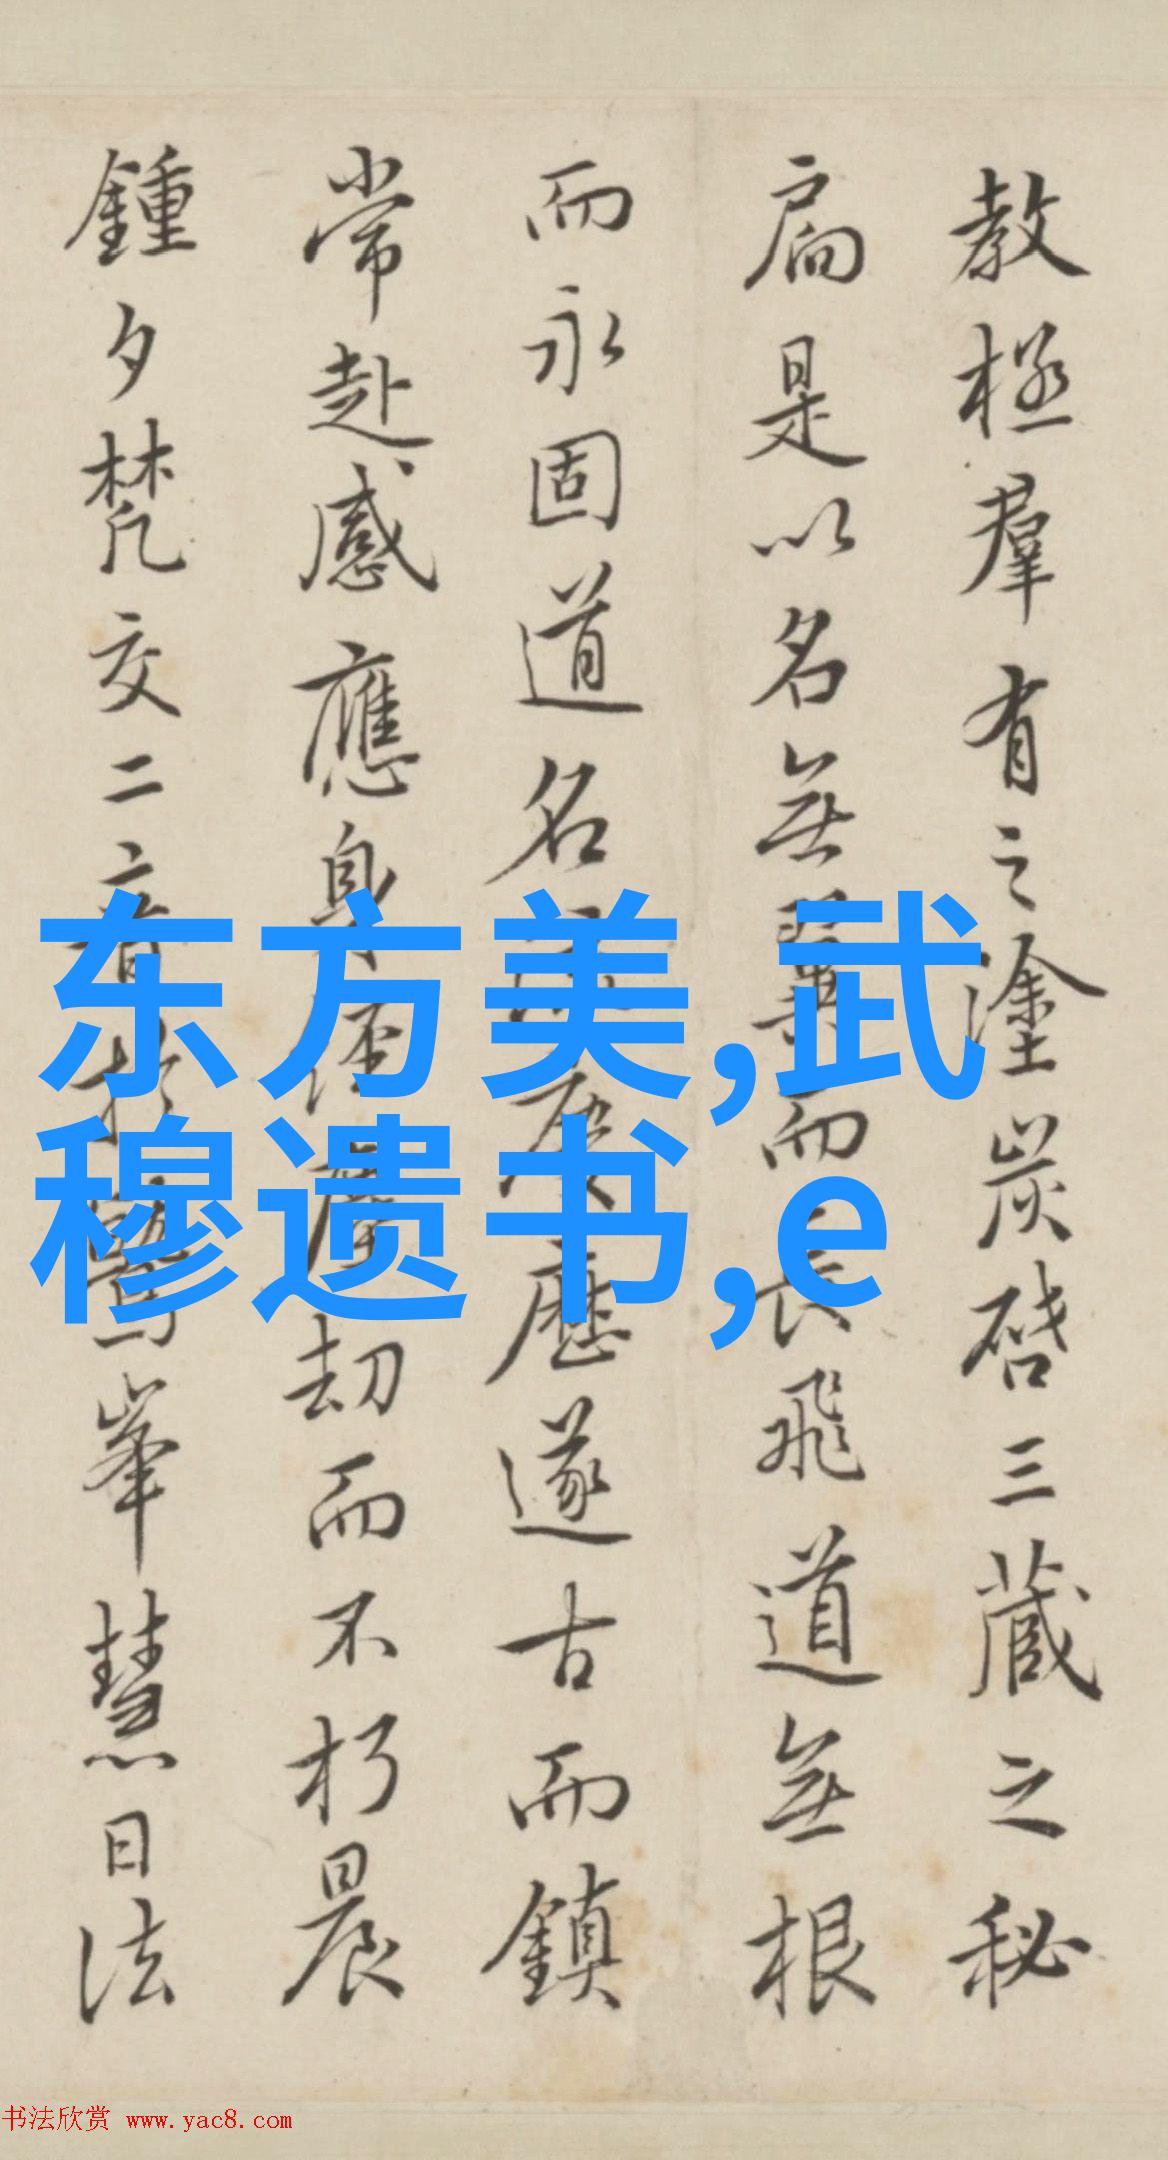 教拯羣有之塗炭啓三藏之秘
扃是以名無翼而長飛道無根
而永固道名流慶歷遂古而鎮
常赴感應身經塵劫而不朽晨
鍾夕梵交二音於鷲峯慧日法
东方美,武
穆遗书,e
书法欣赏 www.yac8.com